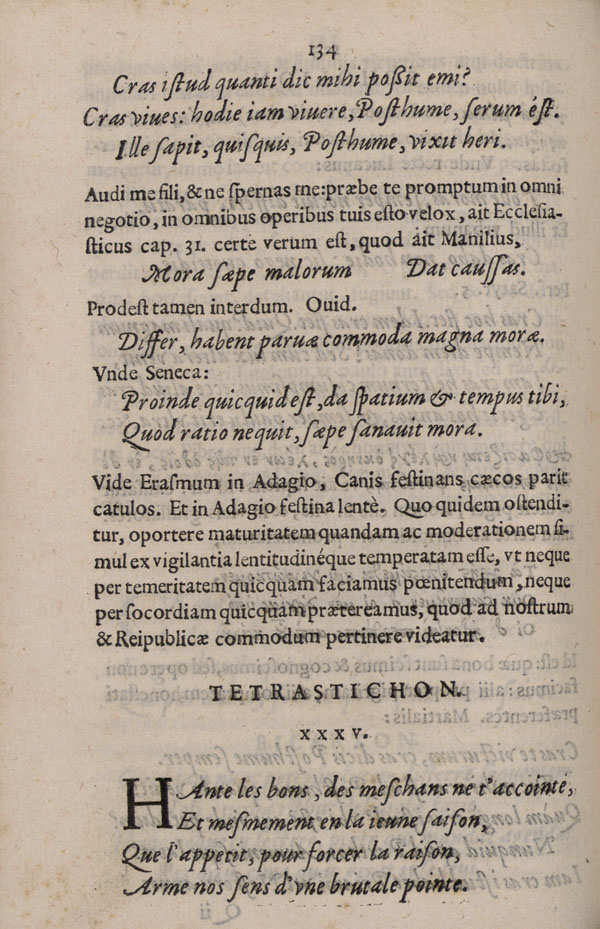 134
Cras istud quanti dic mihi poßit emi?
Cras viues: hodie iam viuere, Posthume, serum ést.
Ille sapit, quisquis, Posthume, vixit heri.
Audi me fili, & ne spernas me: præbe te promptum in omni
negotio, in omnibus operibus tuis esto velox, ait Ecclesia-
sticus cap. 31. certè verum est, quod ait Manilius,
Mora sæpe malorum Dat caussas.
Prodest tamen interdum. Ouid.
Differ, habent paruæ commoda magna moræ.
Vnde Seneca:
Proinde quicquid est, da spatium & tempus tibi,
Quod ratio nequit, sæpe sanauit mora.
Vide Erasmum in Adagio, Canis festinans cæcos parit
catulos. Et in Adagio festina lentè. Quo quidem ostendi-
tur, oportere maturitatem quandam ac moderationem si-
mul ex vigilantia lentitudinéque temperatam esse, vt neque
per temeritatem quicquam faciamus pœnitendum, neque
per socordiam quicquam prætereamus, quod ad nostrum
& Reipublicæ commodum pertinere videatur.
TETRASTICHON.
XXXV.
HAnte les bons, des meschans ne t'accointe,
Et mesmement en la ieune saison,
Que l'appetit, pour forcer la raison,
Arme nos sens d'vne brutale pointe.